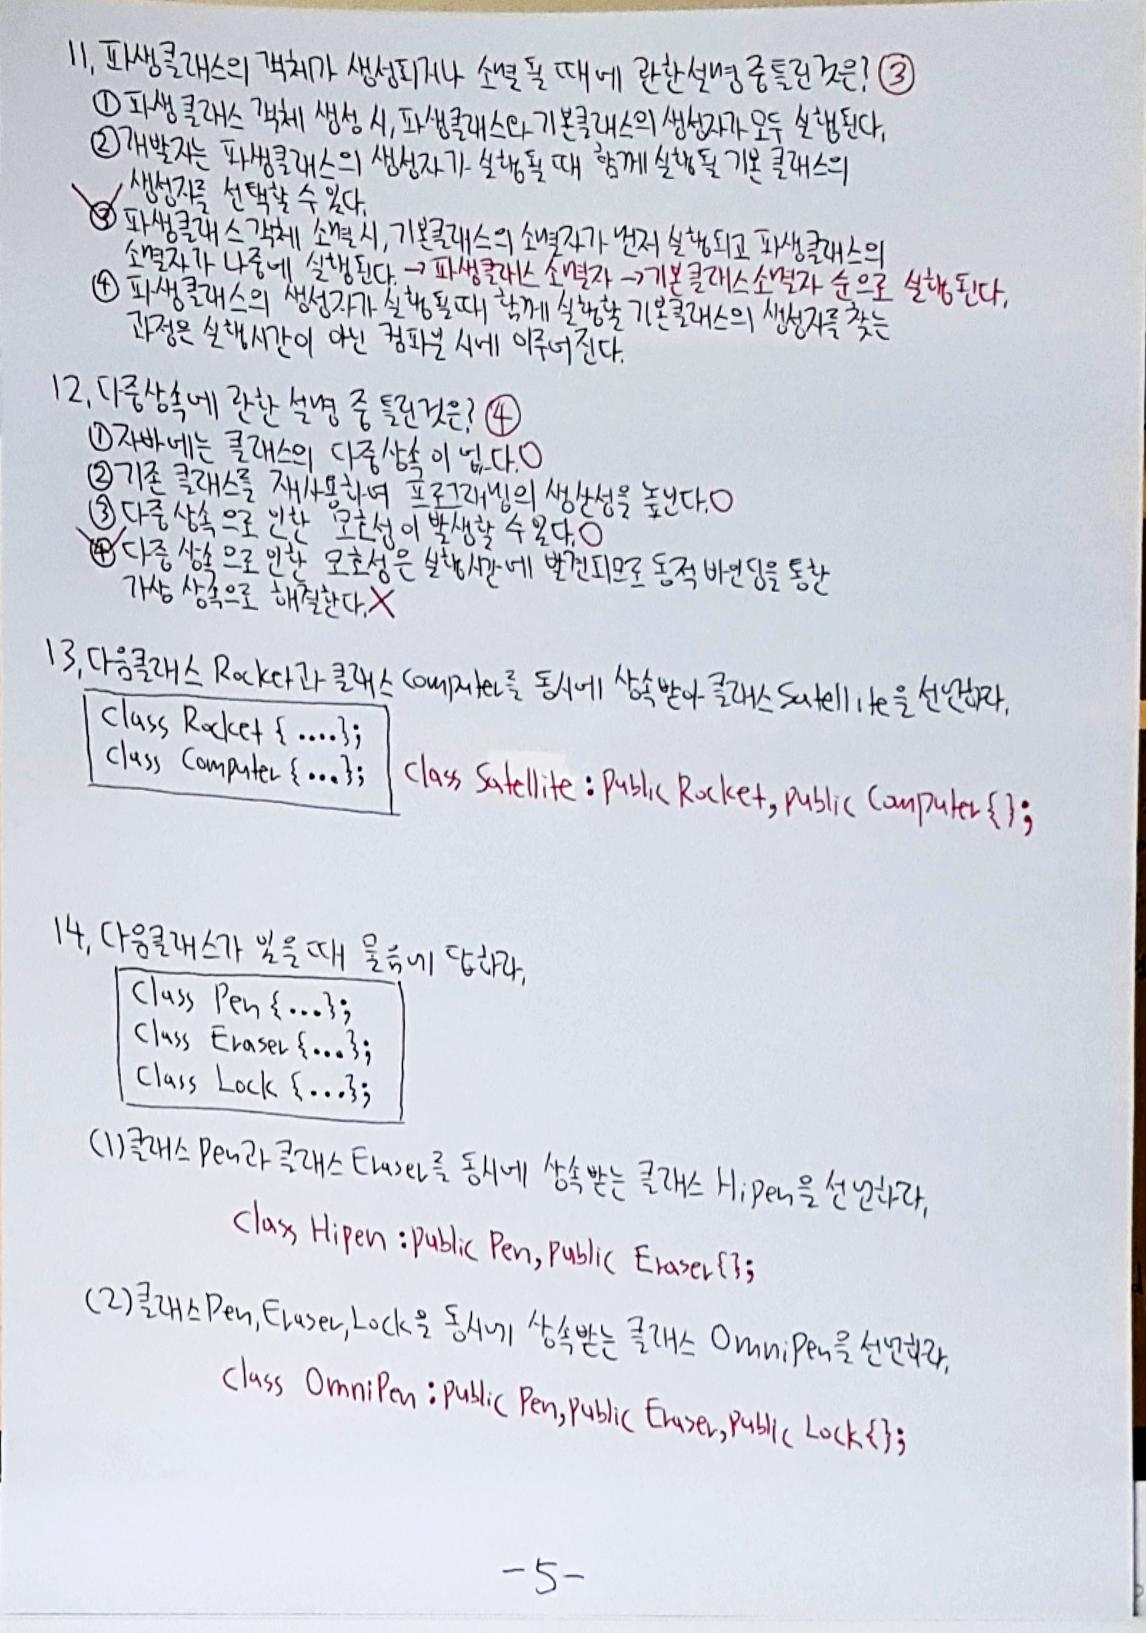 11. 파생클래스의 객체가 생성되거나 소멸 될 때에 관한설명 중 틀린것은? ③
① 파생클래스 객체 생성 시, 파생클래스와 기본클래스의 생성자가 모두 실행된다.
② 개발자는 파생클래스의 생성자가 실행될 때 함께 실행될 기본 클래스의
생성자를 선택할 수 있다.
③ 파생클래스 객체 소멸시, 기본클래스의 소멸자가 먼저 실행되고 파생클래스의
소멸자가 나중에 실행된다. → 파생클래스 소멸자 → 기본클래스소멸자 순으로 실행된다.
④ 파생클래스의 생성자가 실행될때 함께 실행할 기본클래스의 생성자를 찾는
과정은 실행시간이 아닌 컴파일 시에 이루어진다.
12. 다중상속에 관한 설명 중 틀린것은? ④
① 자바에는 클래스의 다중상속이 없다. O
② 기존 클래스를 재사용하여 프로그래밍의 생산성을 높인다. O
③ 다중 상속으로 인한 모호성이 발생할 수 있다. O
④ 다중 상속으로 인한 모호성은 실행시간에 발견되므로 동적 바인딩을 통한
가상 상속으로 해결한다. X
13. 다음클래스 Rocket과 클래스 Computer를 동시에 상속받아 클래스 Satellite을 선언하라.
class Rocket { ....};
class Computer {...};
class Satellite : public Rocket, public Computer{};
14. 다음클래스가 있을 때 물음에 답하라.
class Pen {...};
class Eraser {...};
class Lock {...};
(1) 클래스 Pen과 클래스 Eraser를 동시에 상속받는 클래스 Hipen을 선언하라.
class Hipen : public Pen, public Eraser{};
(2) 클래스 Pen, Eraser, Lock을 동시에 상속받는 클래스 OmniPen을 선언하라.
class OmniPen : public Pen, public Eraser, public Lock{};
-5-